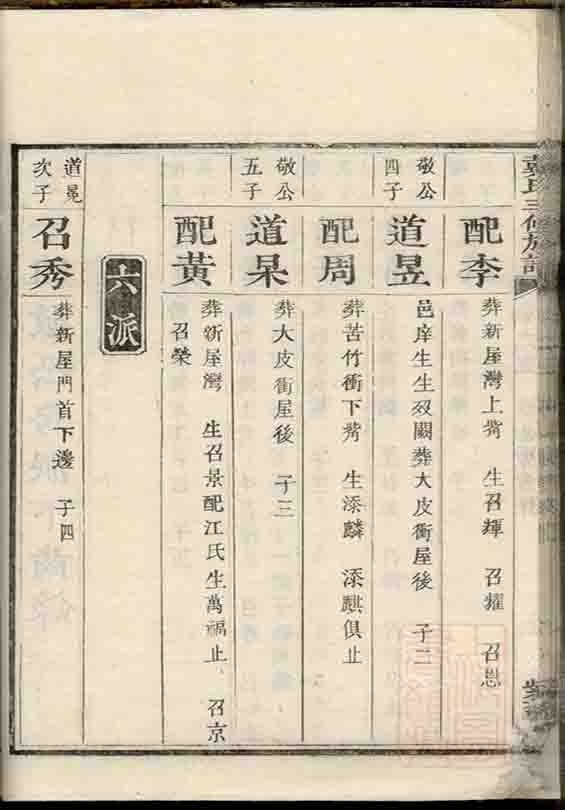 配李
葬新屋灣上嘴 生召輝 召耀
敬公
四子
道昱
邑庠生生歿闕葬大皮衝屋後 子二
配周
葬苦竹衝下嘴 生添麟 添麒俱止
敬公
五子
道杲
葬大皮衝屋後 子三
配黃
葬新屋灣 生召景配江氏生萬福止 召京
召榮
六派
道冕
次子
召秀
葬新屋門首下邊 子四